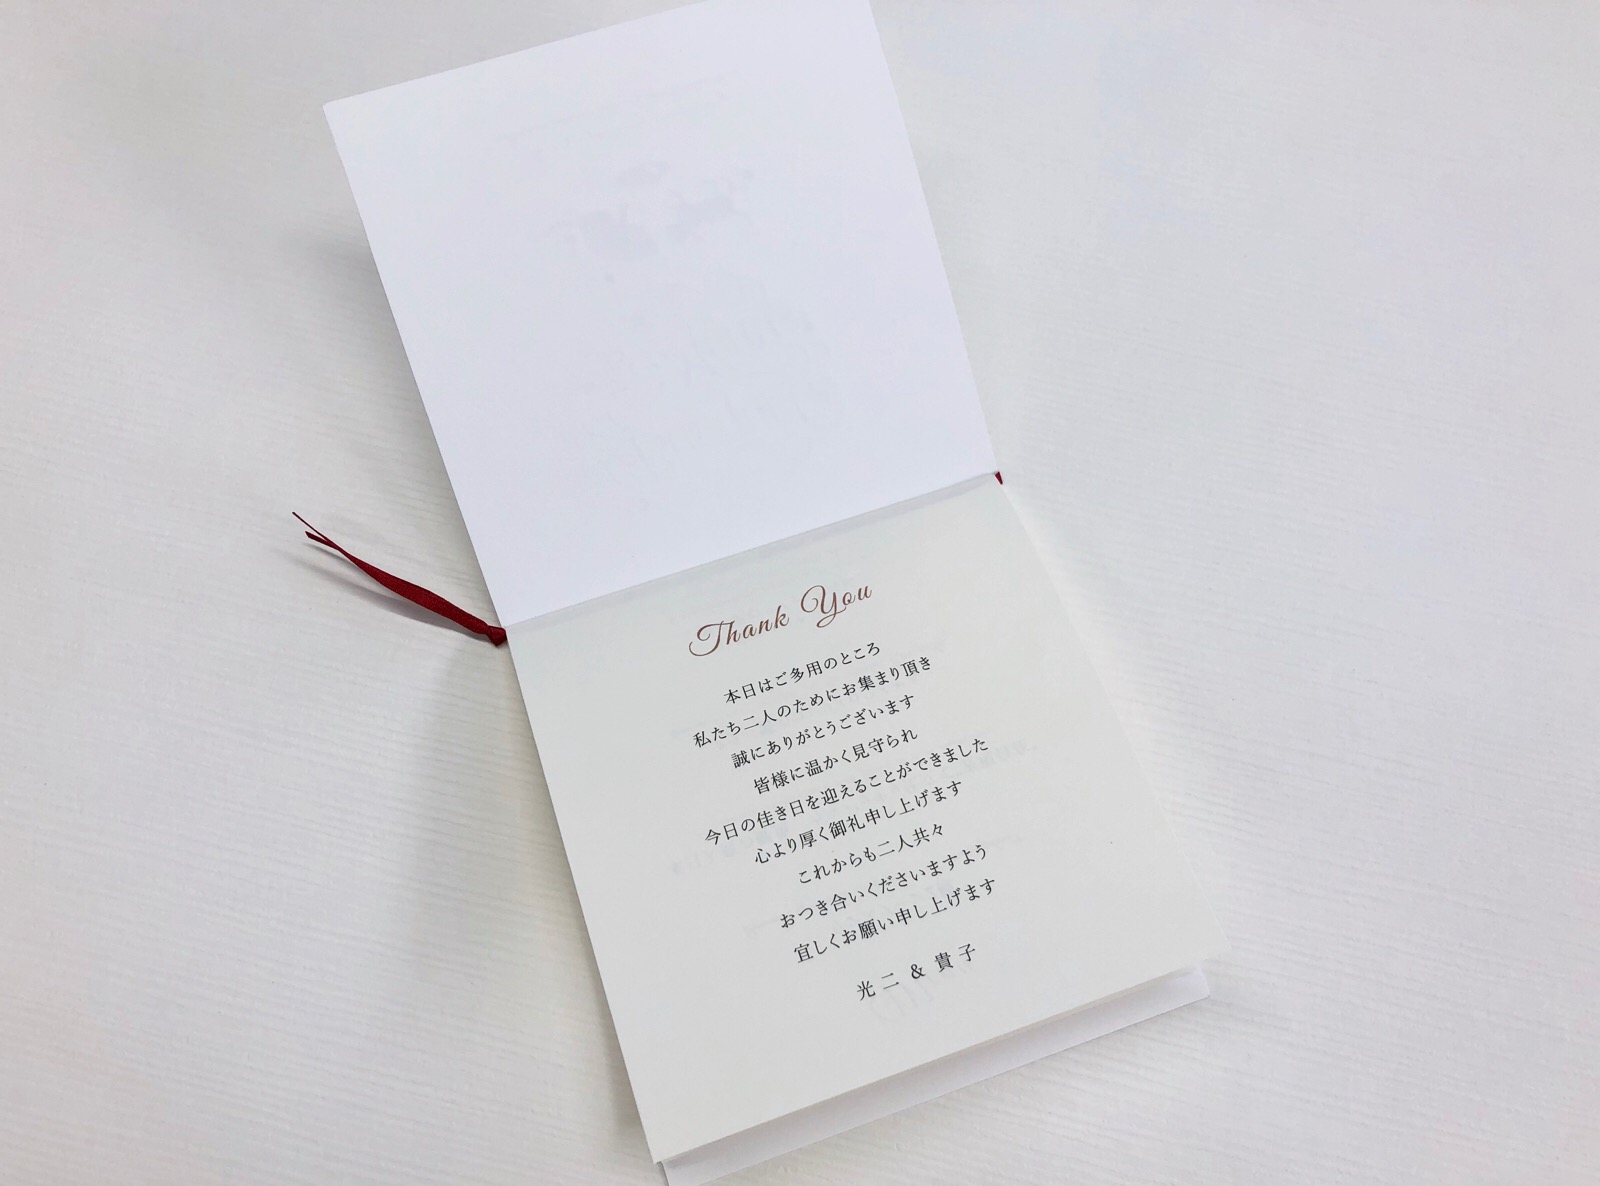 Thank You
本日はご多用のところ
私たち二人のためにお集まり頂き
誠にありがとうございます
皆様に温かく見守られ
今日の佳き日を迎えることができました
心より厚く御礼申し上げます
これからも二人共々
おつき合いくださいますよう
宜しくお願い申し上げます
光二 & 貴子